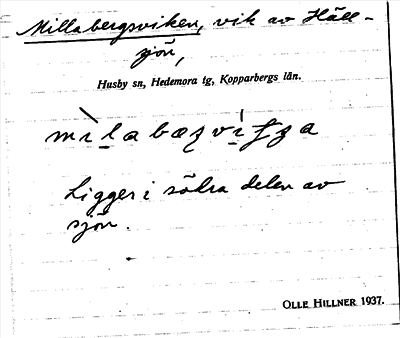 Millabergsviken, vik av Häll-
sjön,
Husby sn, Hedemora tg, Kopparbergs län.
Ligger i södra delen av
sjön.
OLLE HILLNER 1937.